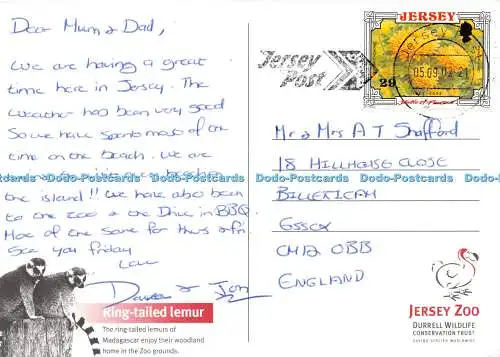 Dear Mum & Dad,
We are having a great
time here in Jersey. The
weather has been very good
so we have spent most of the
time on the beach. We are
the island!! We have also been
to the zoo & the Drive in BBQ
More of the same for Thurs & Fri.
See you friday
Love
& Jon
Ring-tailed lemur
The ring-tailed lemurs of
Madagascar enjoy their woodland
home in the Zoo grounds.
JERSEY
Jersey
Post
29
Jersey
05.09.02
Mr & Mrs A T Stafford
18 HILLHOUSE CLOSE
BILLERICAY
ESSEX
CM12 0BB
ENGLAND
JERSEY ZOO
DURRELL WILDLIFE
CONSERVATION TRUST
SAVING SPECIES WORLDWIDE
Dodo-Postcards Dodo-Postcards Dodo-Postcards Dodo-Postcards Dodo-Postcards